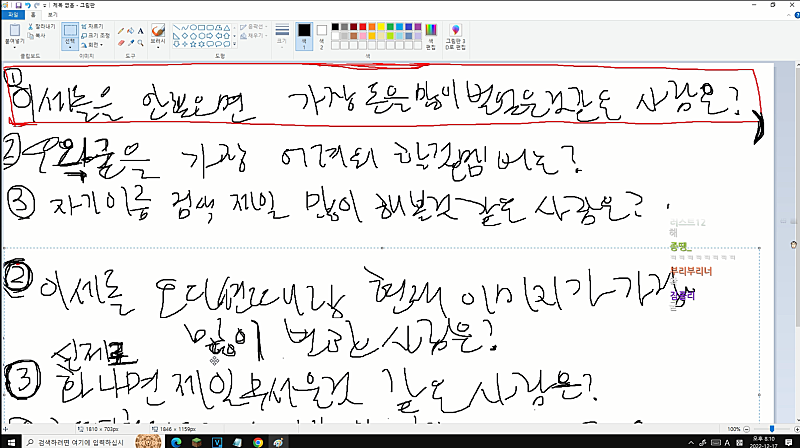 제목 없음 - 그림판
파일 홈 보기
붙여넣기 잘라내기 복사 선택 자르기 크기 조정 회전 브러시 윤곽선 채우기 크기 색 1 색 2 색 편집 그림판 3D로 편집
클립보드 이미지 도구 도형 색
① 이세돌을 안했으면 가장 돈을 많이 벌었을것같은 사람은?
② 우왁굳을 가장 어려워 할것 멤버는?
③ 자기이름 검색 제일 많이 해볼것 같은 사람은?
해
종맹_
ㅋㅋㅋㅋㅋㅋㅋㅋ
부리부리너
② 이세돌 오디션때랑 현재 이미지가 가장
많이 변한 사람은?
실제로
③ 화나면 제일 무서울것 같은 사람은?
1810 × 703px 1846 × 1159px 100%
검색하려면 여기에 입력하십시 오후 8:10
2022-12-17